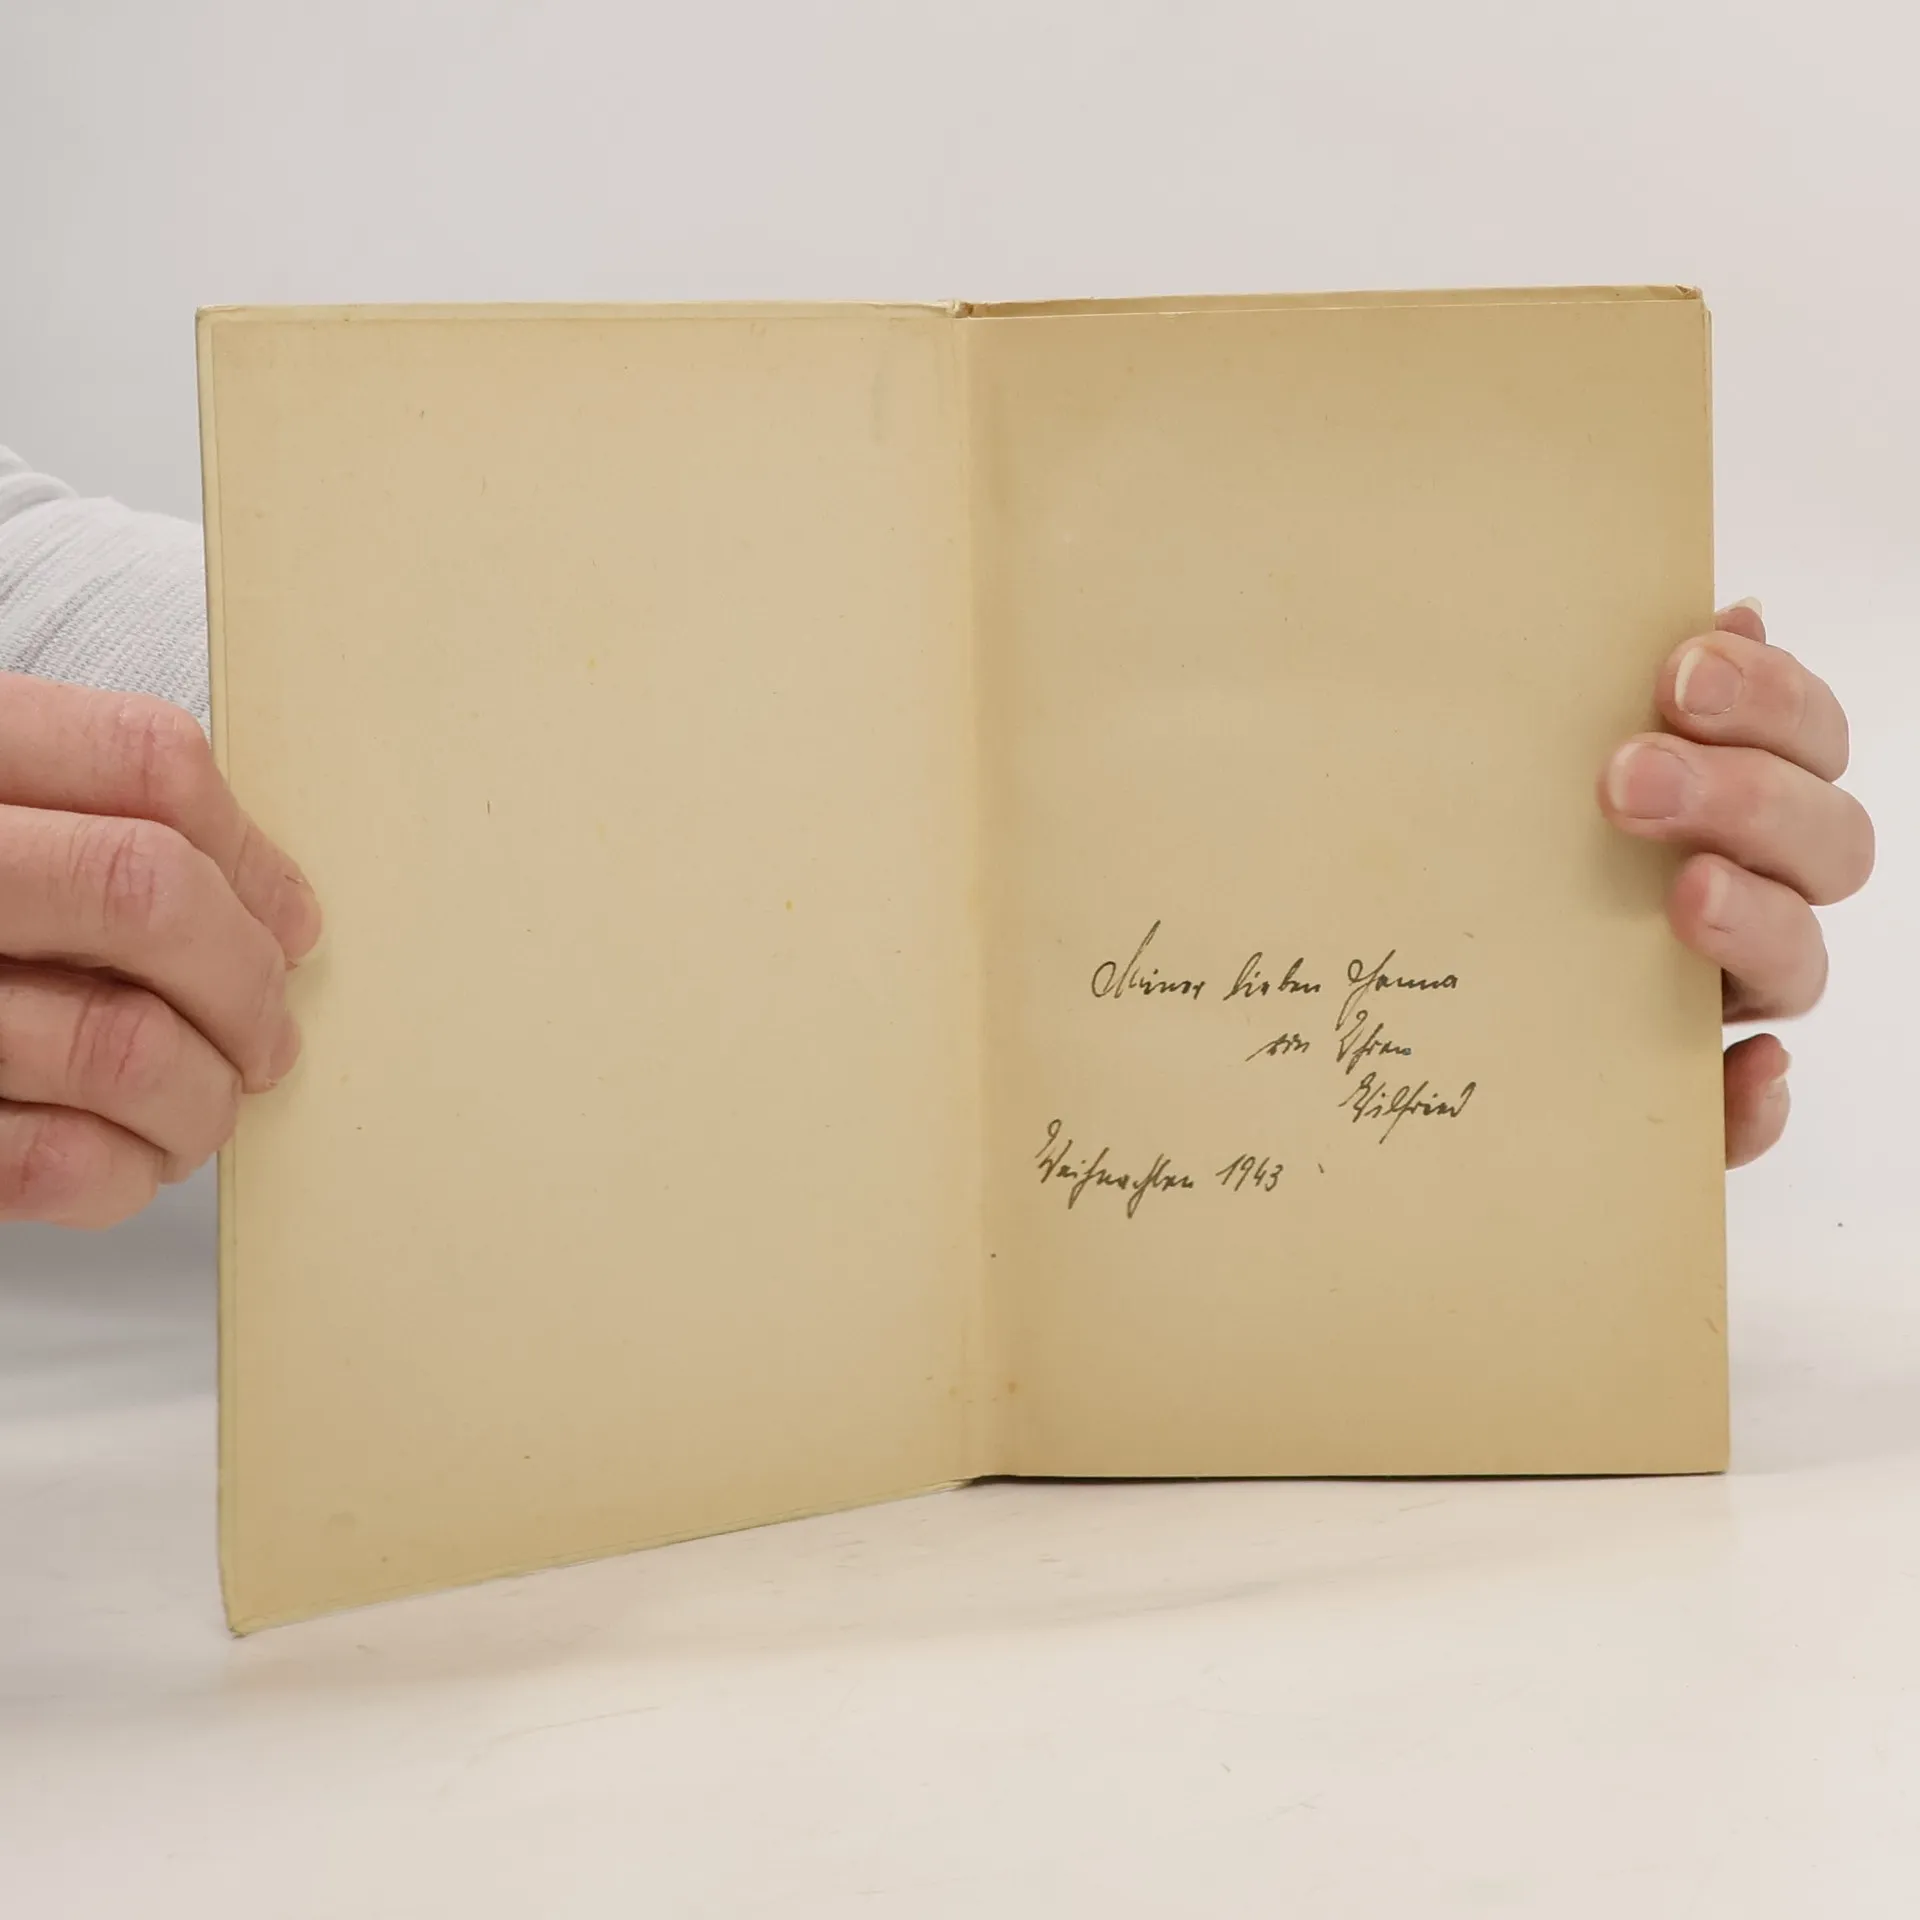 Meiner lieben Hanna
von Ihrem
Wilfried
Weihnachten 1943